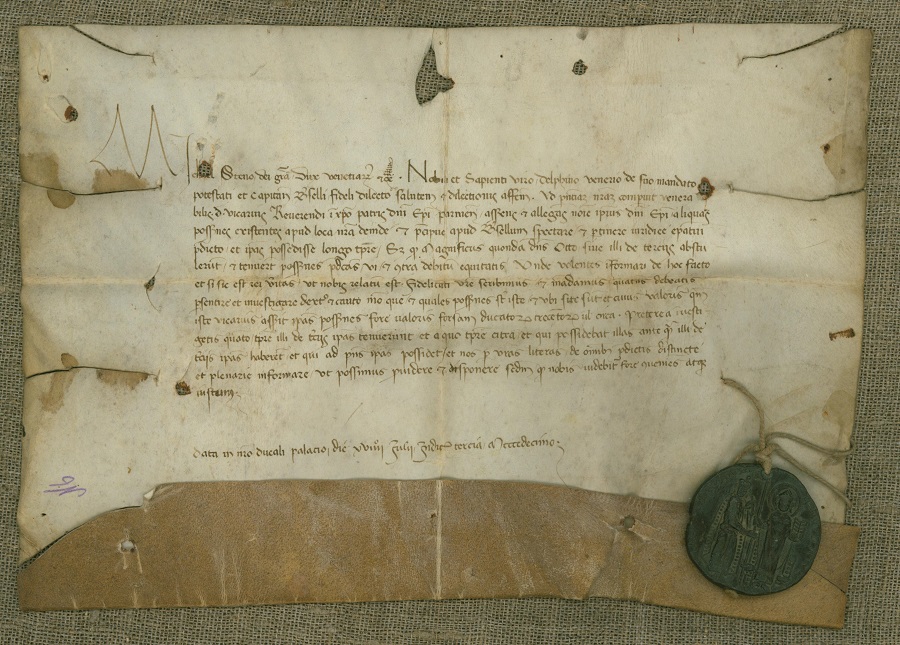 Michael Steno dei gra Dux venetiar &c. Nobili et Sapienti viro Delphino venerio de suo mandato
potestati et Capitan Bselli fideli dilecto salutem & dilectionis affem. Ad pntiam nram compuit venera
bilis d. vicarius Reverendi i xpo patris dni Epi parmen asserens & allegans noie ipius dni Epi aliquas
possnes existentes apud loca nra deinde & pcipue apud Bsellum spectare & ptinere iuridice epatui
pdicto et ipas possedisse longo tpre. Sz q Magnificus quondam dns Otto sive illi de terciis abstu
lerut & tenuert possnes pdcas vi & contra debitu equitatis. Unde volentes iformari de hoc facto
et si sic est rei vitas ut nobis relatu est fidelitati vre scribimus & madamus quatus debeatis
psentire et investigare dext & cauto mo que & quales possnes st iste & ubi site sut et cuius valoris qm
iste vicarius asserit ipas possnes fore valoris forsan ducator trecetor vl circa. Preterea investi
getis quato tpre illi de tciis ipas tenuerunt et a quo tpre citra et qui possidebat illas ante q illi de
tciis ipas haberet et qui ad pns ipas possidet et nos p vras literas de omib pdictis distincte
et plenarie informare ut possimus pvidere & disponere sedm q nobis videbit fore queniens atq
iustum.
Data in nro ducali palacio die xviiii Julii Indict tercia Mccccdecimo.